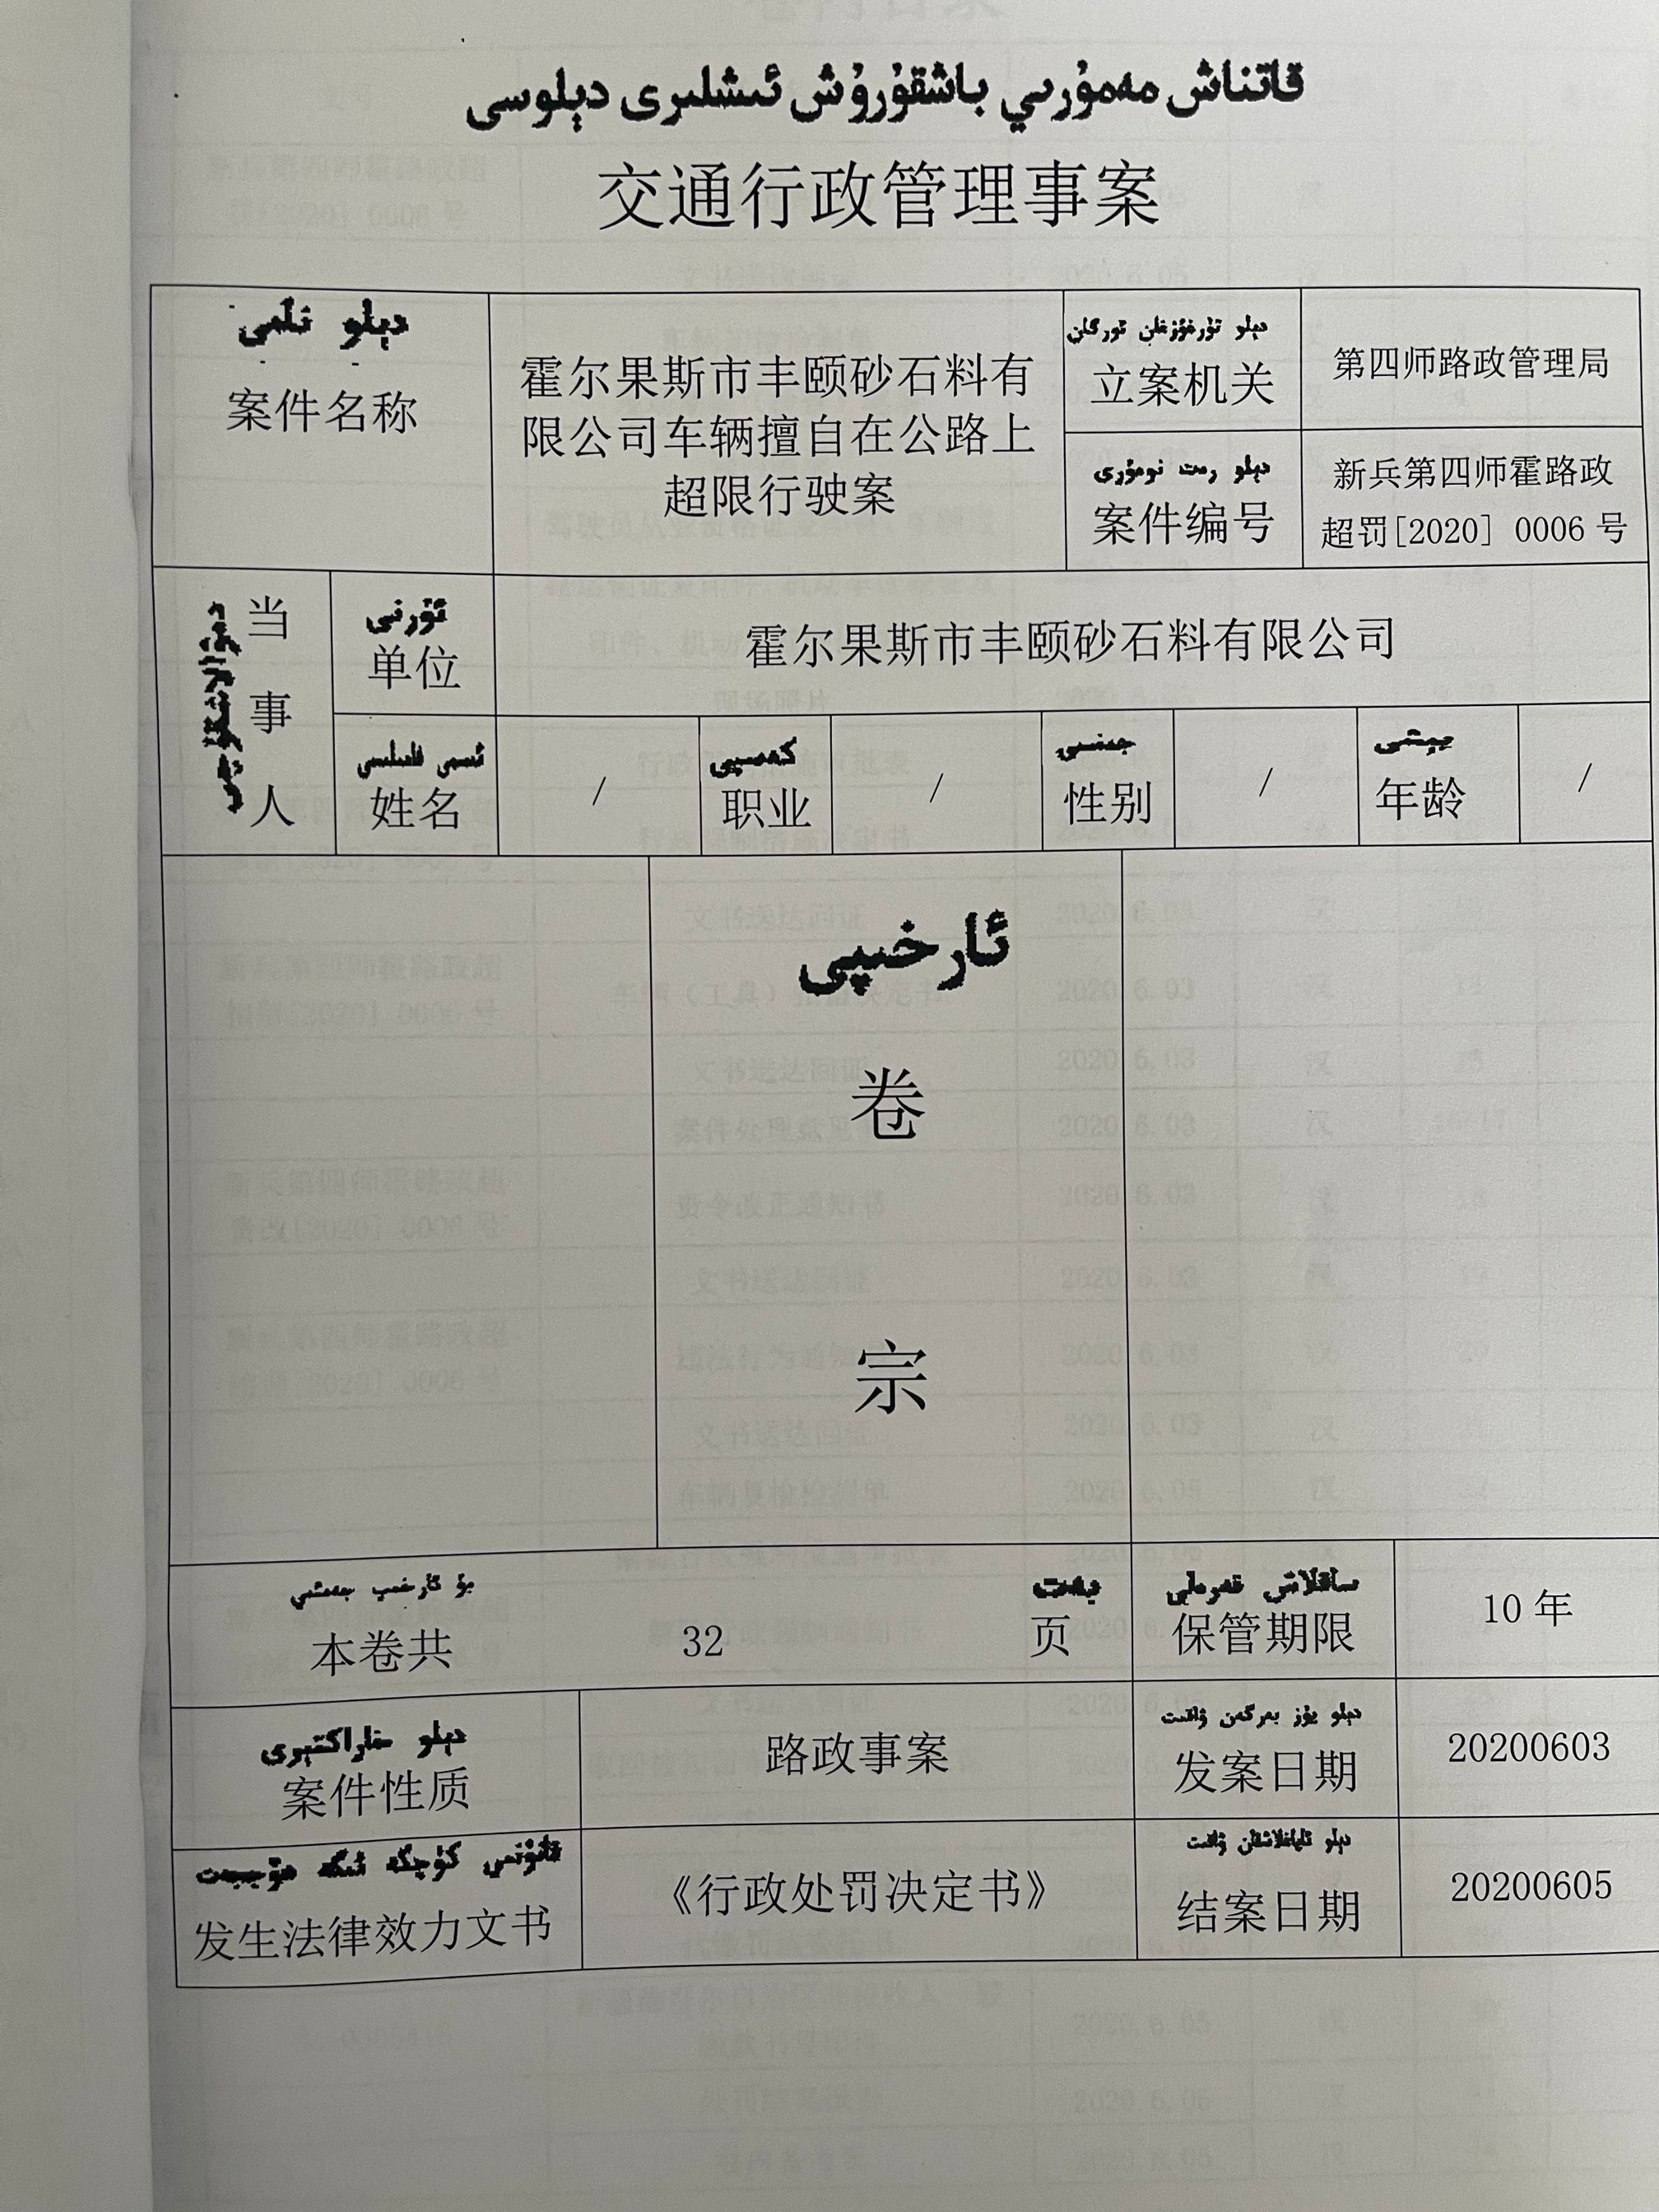 قاتناش مەمۇرىي باشقۇرۇش ئىشلىرى دېلوسى
交通行政管理事案
دېلو نامى
案件名称
霍尔果斯市丰颐砂石料有
限公司车辆擅自在公路上
超限行驶案
دېلو تۇرغۇزغان ئورگان
立案机关
第四师路政管理局
دېلو رەت نومۇرى
案件编号
新兵第四师霍路政
超罚[2020] 0006 号
当
事
人
ئورنى
单位
霍尔果斯市丰颐砂石料有限公司
ئىسمى فامىلىسى
姓名
/
كەسپى
职业
/
جىنسى
性别
/
يېشى
年龄
/
ئارخىپى
卷
宗
بۇ ئارخىپ جەمئىي
本卷共
32
بەت
页
ساقلاش قەرەلى
保管期限
10 年
دېلو خاراكتېرى
案件性质
路政事案
دېلو يۈز بەرگەن ۋاقىت
发案日期
20200603
قانۇنىي كۈچكە ئىگە ھۆججەت
发生法律效力文书
《行政处罚决定书》
دېلو ئاياغلاشقان ۋاقىت
结案日期
20200605